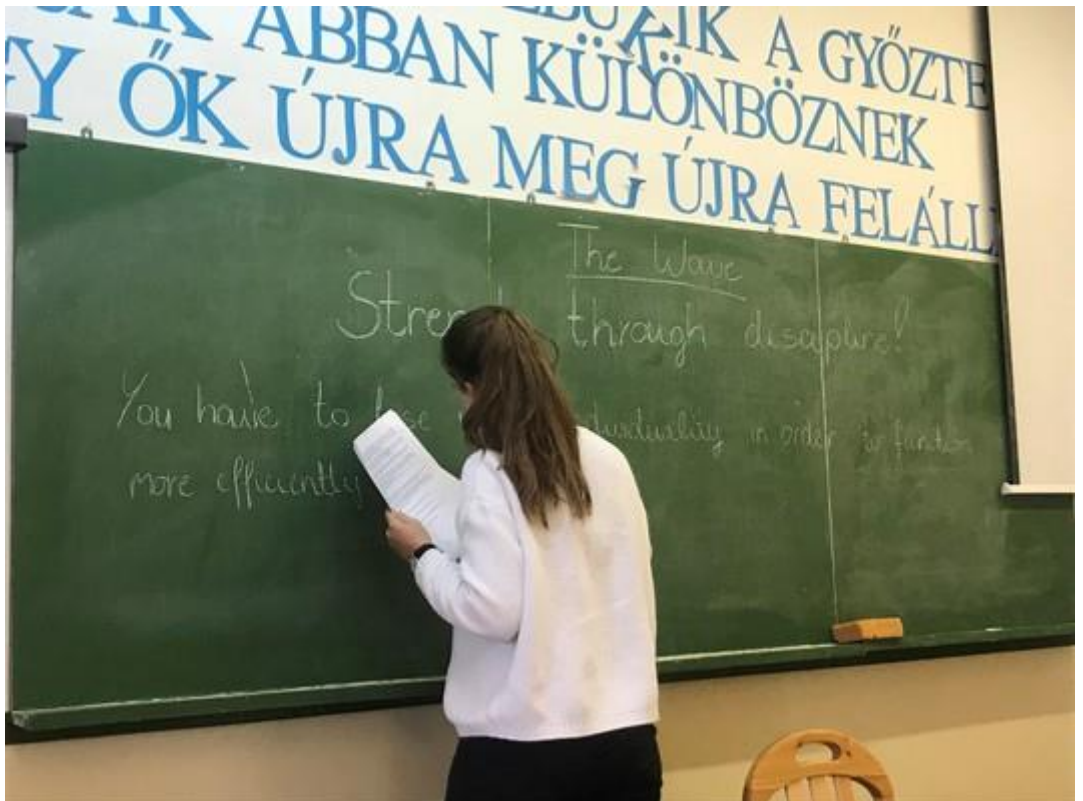 BUKIK A GYŐZTE
AK ABBAN KÜLÖNBÖZNEK
Y ŐK ÚJRA MEG ÚJRA FELÁLL
The Wave
Stren through discipline!
You have to lose dividuality in order to function
more efficiently